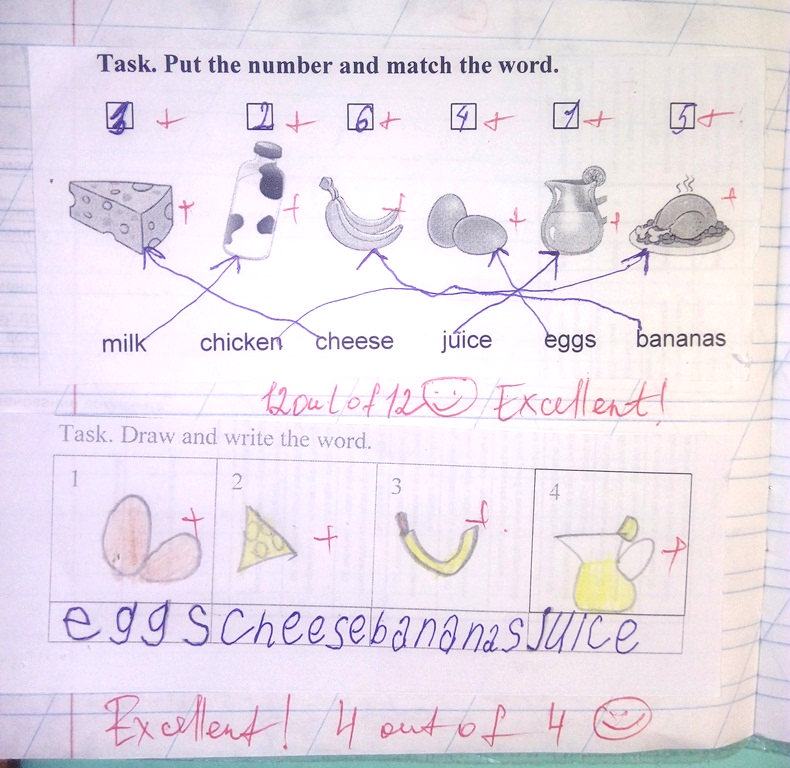 Task. Put the number and match the word.
3 + 2 + 6 + 4 + 1 + 5 +
+ + + + + +
milk chicken cheese juice eggs bananas
12 out of 12 Excellent!
Task. Draw and write the word.
1 2 3 4
+ + + +
eggs cheese bananas juice
Excellent! 4 out of 4